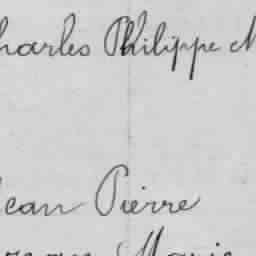 harles Philippe
Jean Pierre
Marie